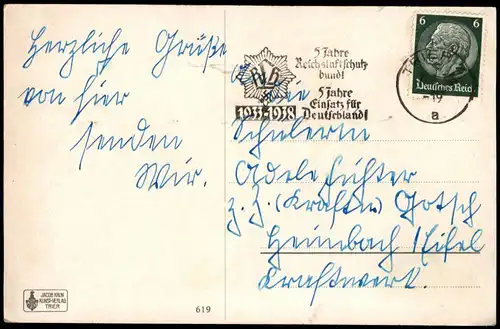 Herzliche Grüße
von hier
senden
Wir.
5 Jahre
Reichsluftschutz-
bund!
5 Jahre
Einsatz für
Deutschland!
1933-1938
6 6
Deutsches Reich
19
a
Schülerin
Adele Lichter
z. Z. (Kraftw) Gotsch
Heimbach / Eifel
Kraftwerk.
JACOB KRUN
KUNST-VERLAG
TRIER
619